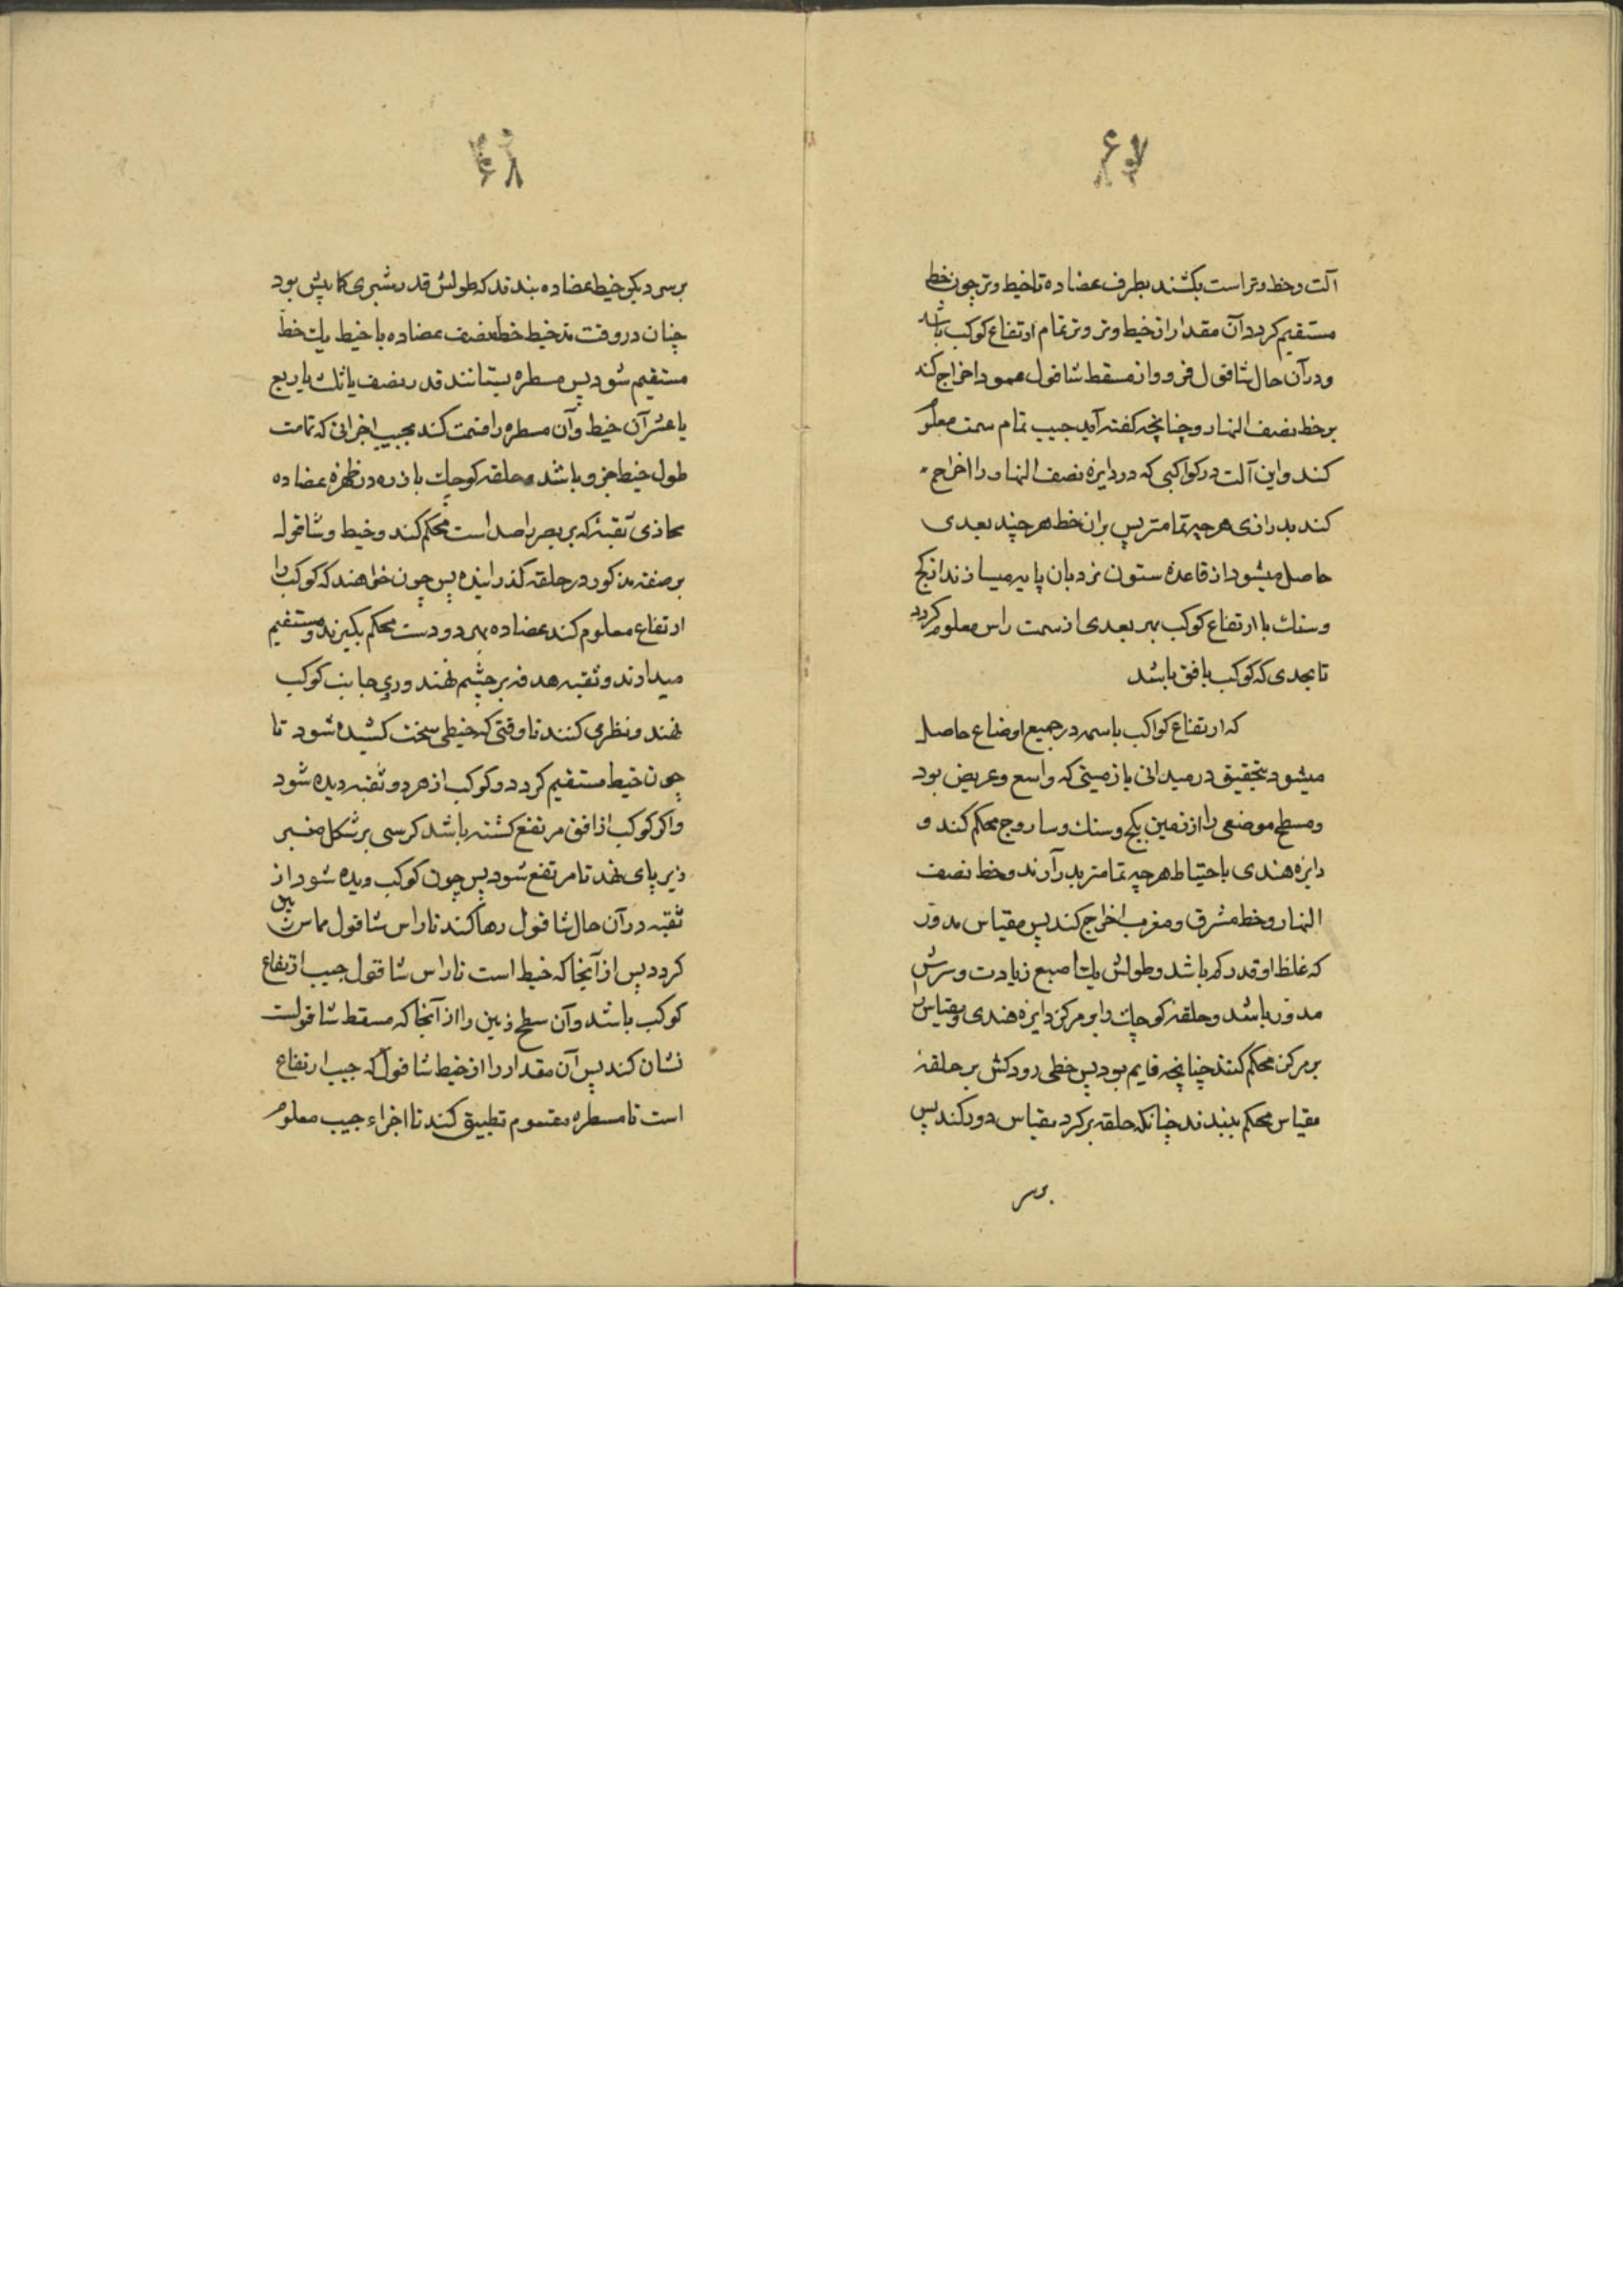 آلت و خط وتر است بکشند بطرف عضاده تا خیط وتر چون خط
مستقیم کردد آن مقدار از خیط وتر وتر تمام ارتفاع کوکب باشد
و در آن حال شاقول فرو و از مسقط شاقول عمود اخراج کند
بر خط نصف النهار و چنانچه کفته آید جیب تمام سمت معلوم
کند و این آلت در کواکبی که در دایره نصف النهار را اخراج
کند بدرازی هر چه تمامتر پس بر ان خط هر چند بعدی
حاصل میشود از قاعده ستون نردبان پایه میسازند از کج
و سنك با ارتفاع کوکب بهر بعدی از سمت راس معلوم کردد
تا بحدی که کوکب بافق باشد
که ارتفاع کواکب باسمه در جمیع اوضاع حاصل
میشود بتحقیق در میدانی یا زمینی که واسع و عریض بود
و مسطح موضعی را از زمین بکج و سنك و ساروج محکم کند و
دایره هندی باحتیاط هر چه تمامتر بدر آرند و خط نصف
النهار و خط مشرق و مغرب اخراج کند پس مقیاس مدور
که غلظ او قدر که باشد و طولش یك اصبع زیادت و سرش
مدور باشد و حلقه کوچك را بر مرکز دایره هندی و مقیاس را
بر مرکز محکم کنند چنانچه قایم بود پس خطی رودکش بر حلقه
مقیاس محکم ببندند چنانکه حلقه بر کرد مقیاس دور کند پس
بر سر
بر سر دیکر خیط عضاده بندند که طولش قدر شبری کما بیش بود
چنان در وقت مد خیط خط نصف عضاده با خیط یك خط
مستقیم شود پس مسطره بستانند قدر نصف یا ثلث یا ربع
یا عشر آن خیط و آن مسطره را قسمت کند بجیب اجزائی که تمامت
طول خیط جزو باشد و حلقه کوچك باذره در ظهره عضاده
محاذی ثقبۀ که بر بصر راصد است محکم کند و خیط و شاقول
بر صفت مذکور در حلقه کذرانیده پس چون خواهند که کوکب را
ارتفاع معلوم کند عضاده بهر دو دست محکم بکیرند و مستقیم
میدارند و ثقبه هدفه بر چشم نهند و روی جانب کوکب
نهند و نظر می کنند تا وقتی که خیطی سخت کشیده شود تا
چون خیط مستقیم کردد و کوکب از هر دو ثقبه دیده شود
و اکر کوکب از افق مرتفع کشته باشد کرسی بر شکل منبر
زیر پای نهد تا مرتفع شود پس چون کوکب دیده شود از
ثقبه در آن حال شاقول رها کند تا راس شاقول مماس زمین
کردد پس از آنجا که خیط است تا راس شاقول جیب ارتفاع
کوکب باشد و آن سطح زمین را از آنجا که مسقط شاقولست
نشان کند پس آن مقدار را از خیط شاقول که جیب ارتفاع
است تا مسطره مقسوم تطبیق کند تا اجزاء جیب معلوم